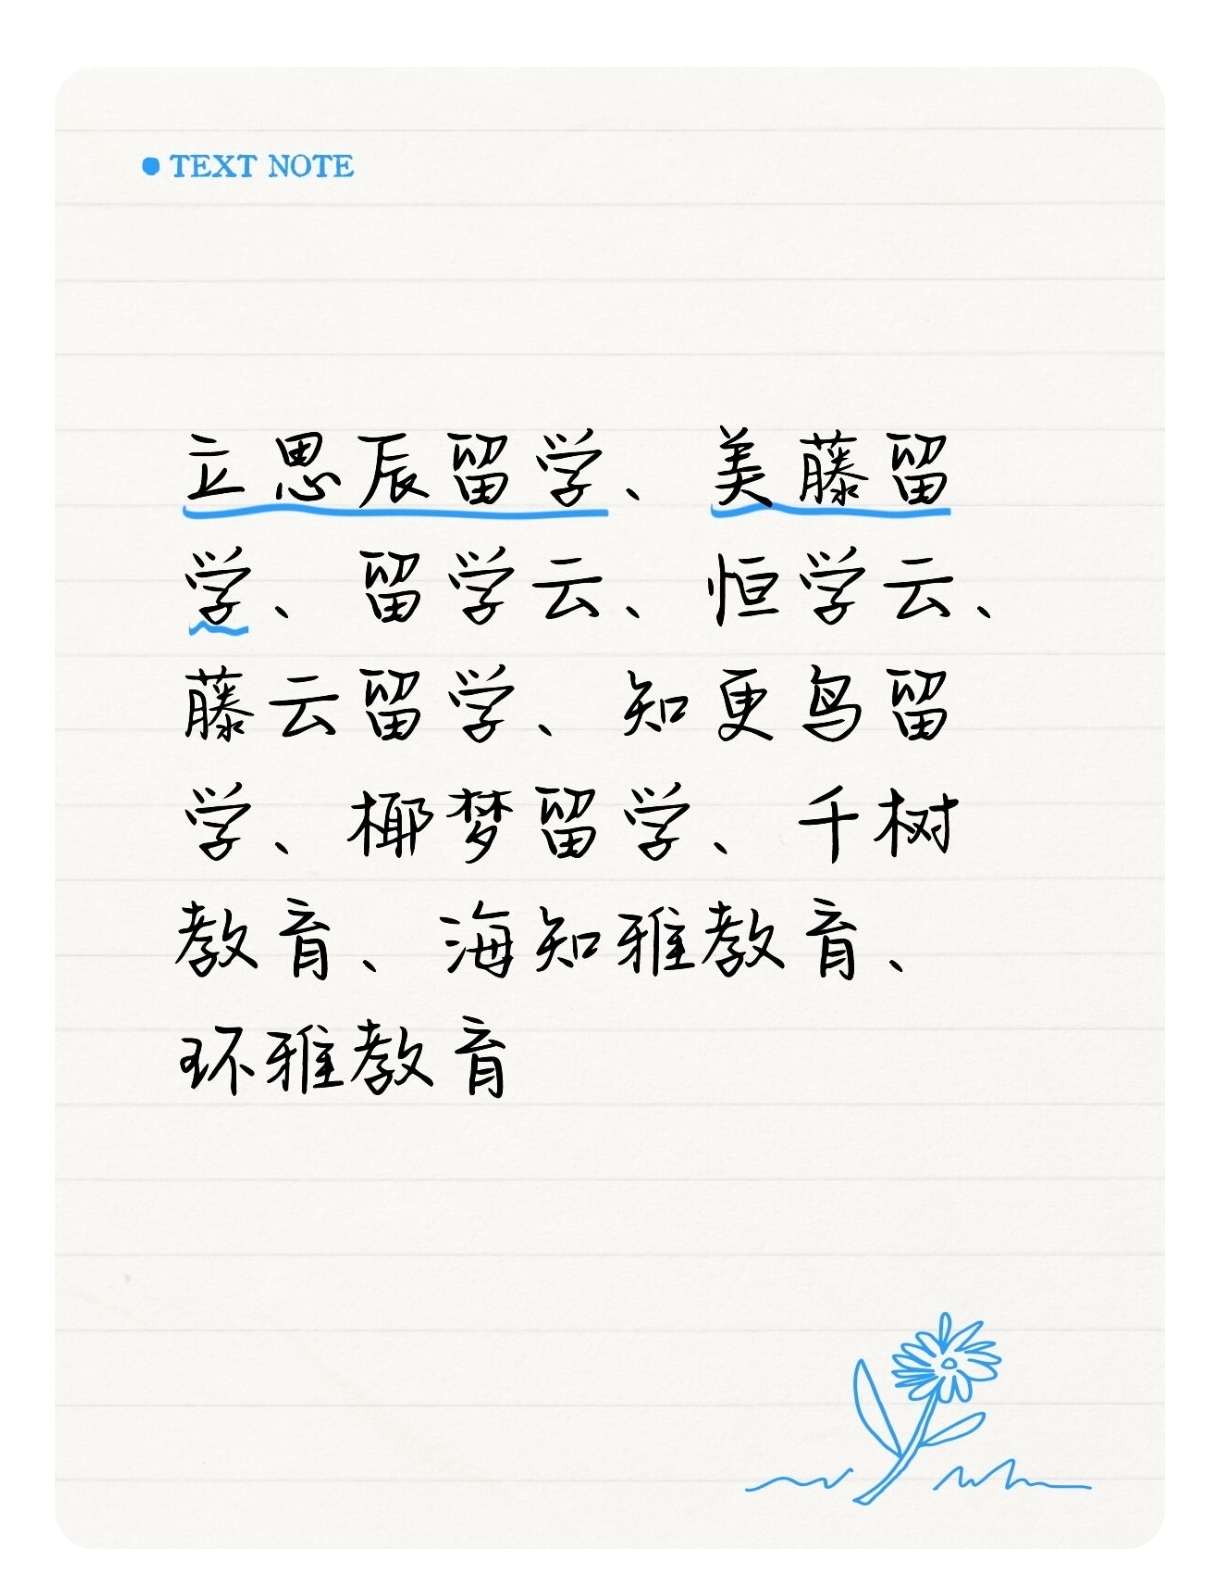 TEXT NOTE
立思辰留学、美藤留
学、留学云、恒学云、
藤云留学、知更鸟留
学、椰梦留学、千树
教育、海知雅教育、
环雅教育